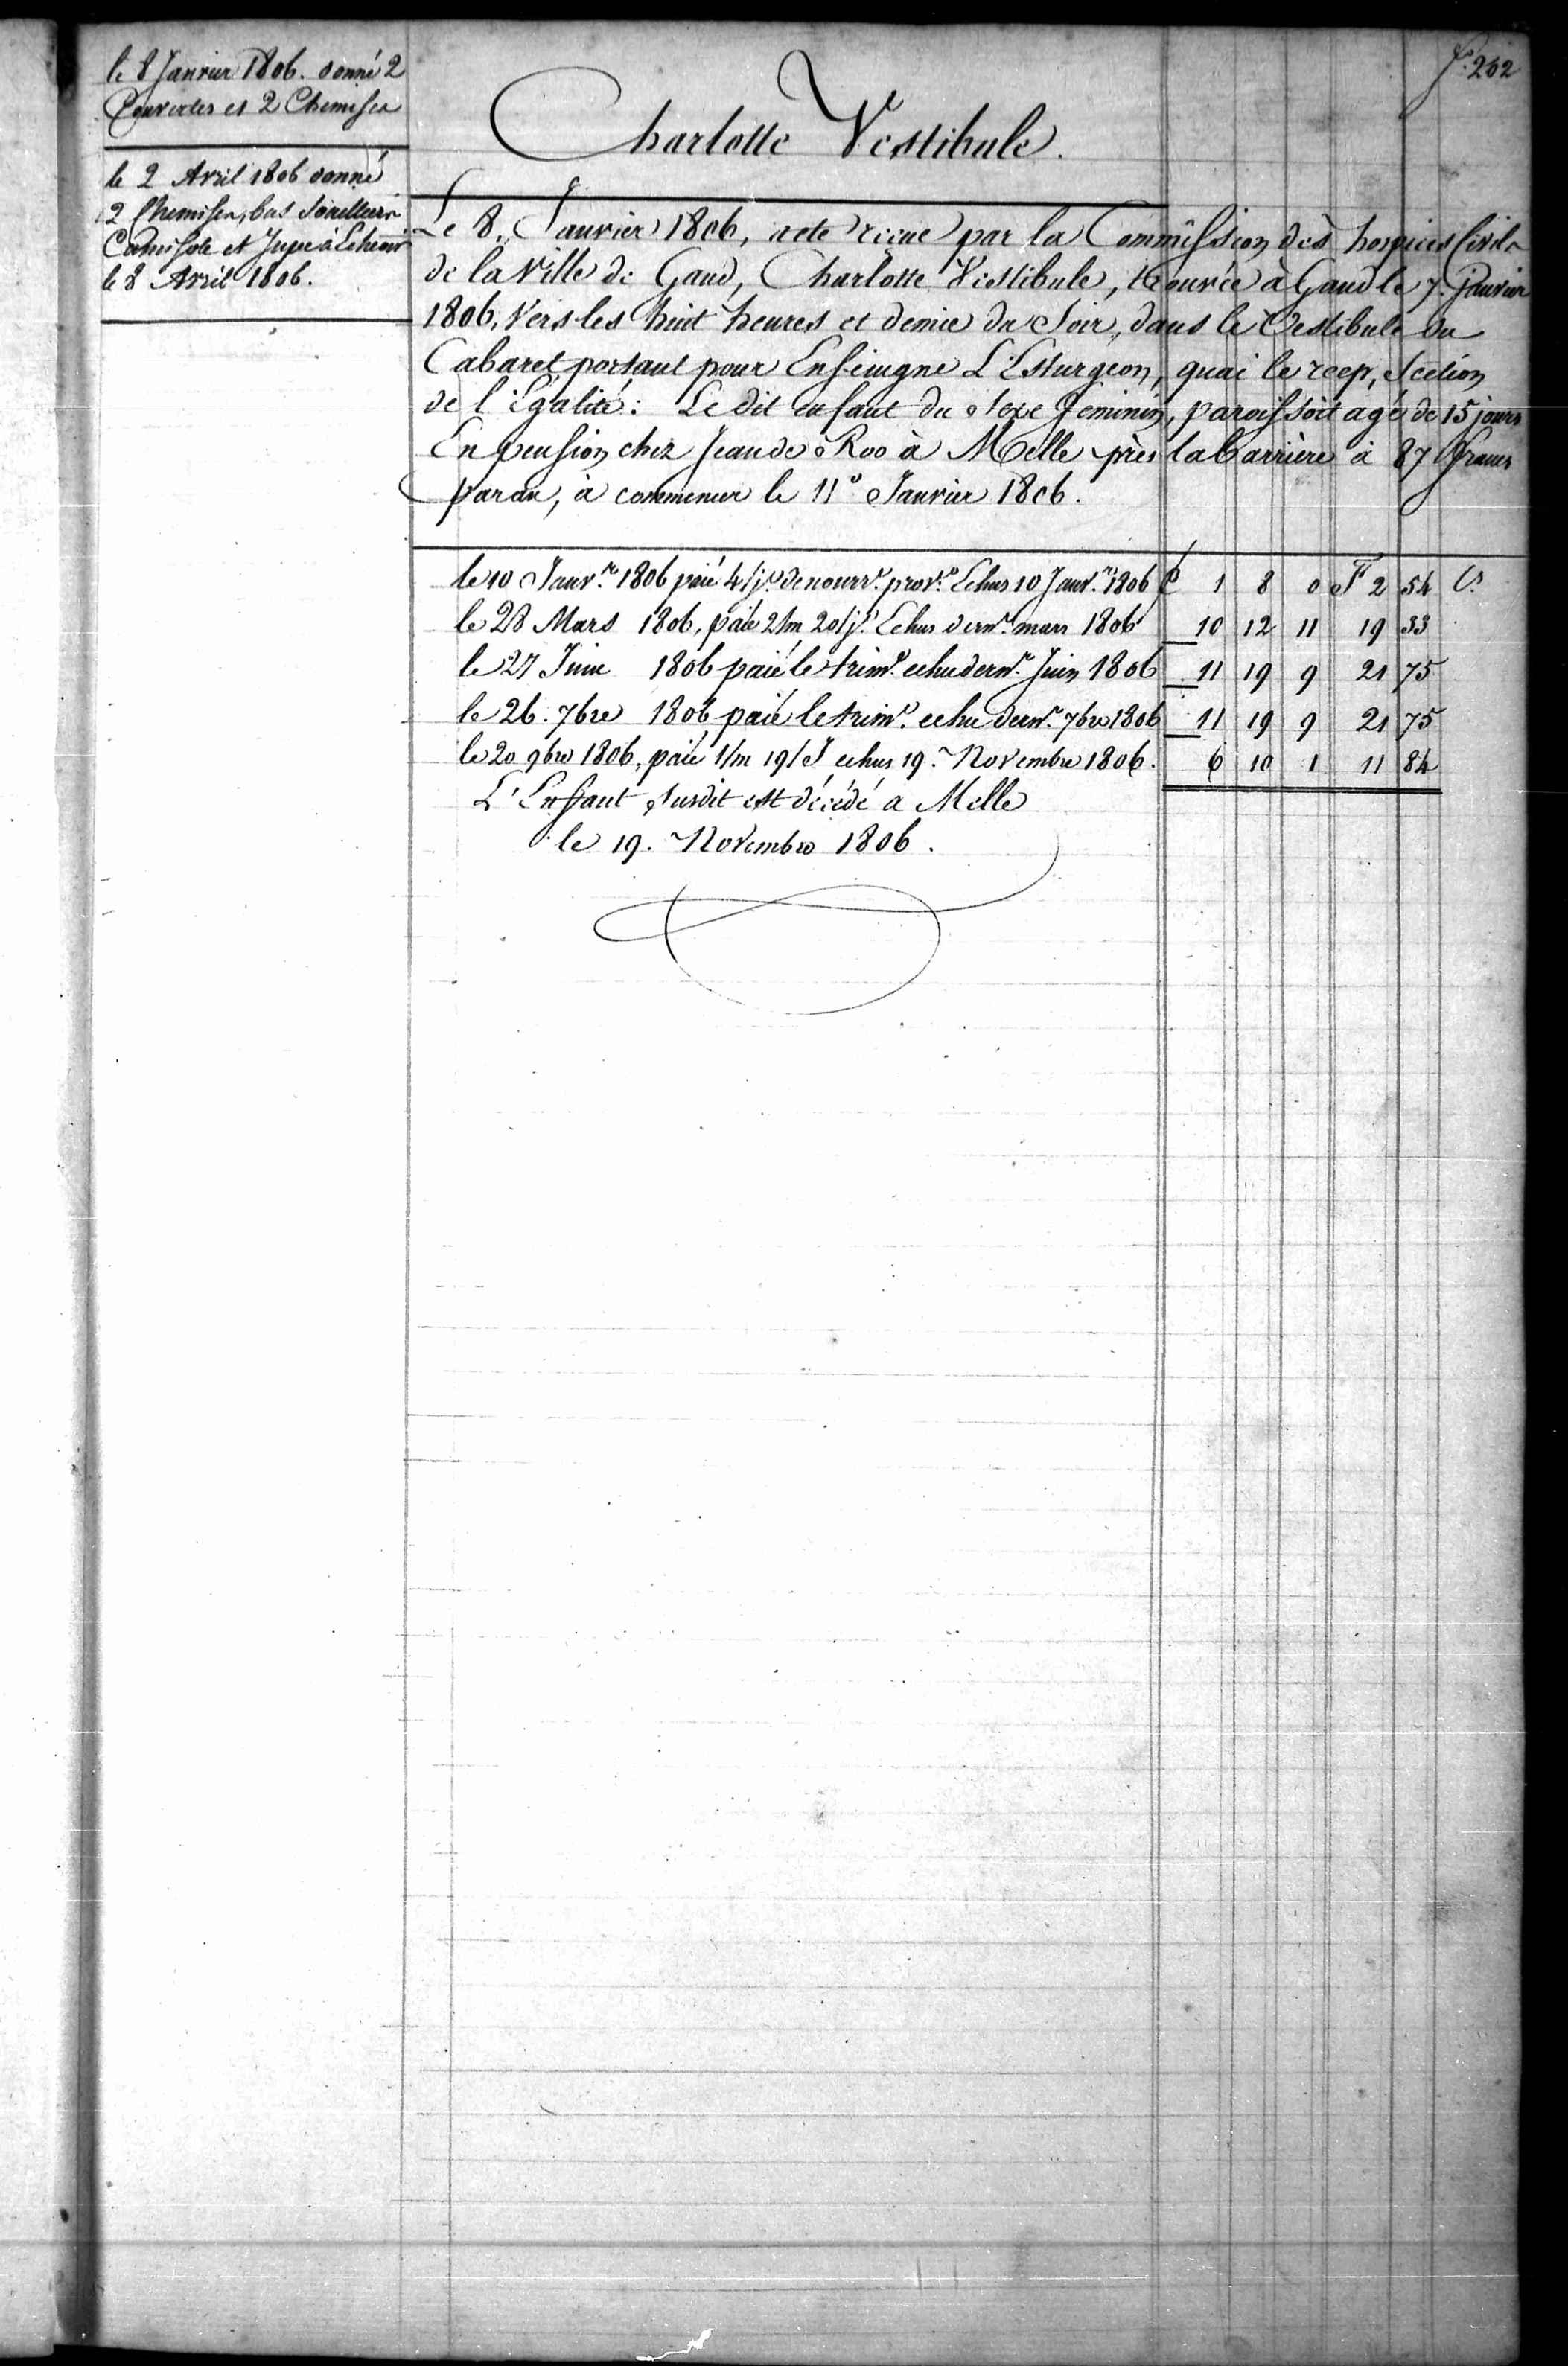 f.° 262
le 8 Janvier 1806. donné 2
Couvertes et 2 Chemises
le 2 Avril 1806 donné
2 Chemises, bas Souilliers
Camisole et Jupe à Echeoir
le 8 Avril 1806.
Charlotte Vestibule.
Le 8. Janvier 1806, a eté reçue par la Commission des hospices Civils
de la Ville de Gand, Charlotte Vestibule, trouvée à Gand le 7. Janvier
1806, Vers les huit heures et demie du Soir, dans le Vestibule du
Cabaret portant pour Enseingne L'Esturgeon, quai le reep, section
de l'Egalité: Le dit enfant du sexe feminin, paroissoit agé de 15 jours
En pension chez Jean de Roo à Melle près la barrière à 87 francs
par an, à commencer le 11° Janvier 1806.
le 10 Janv.r 1806 paié 4/j.s de nourr.e prov.e Echus 10 Janv.r 1806 £ 1 8 0 F 2 54 C.s
le 28 Mars 1806, paié 2/m 20/j.s Echus dern.r mars 1806 10 12 11 19 33
le 27 Juin 1806 paié le trim.e echu dern.r Juin 1806 11 19 9 21 75
le 26. 7bre 1806 paié le trim.e echu dern.r 7bre 1806 11 19 9 21 75
le 20 9bre 1806, paié 1/m 19/J echus 19. Novembre 1806. 6 10 1 11 84
L'Enfant Susdit est décédé a Melle
le 19. Novembre 1806.